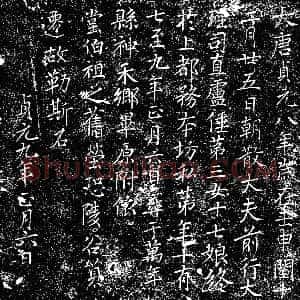 大唐貞元八年歲在壬申閏
子月廿五日朝散大夫前行大
理司直盧倕第三女十七娘終
於上都務本坊之第年十有
七至九年正月六日權葬于萬年
縣神禾鄉畢原附
堂伯祖之舊塋恐陵谷貿
遷故勒斯石
貞元九年正月六日